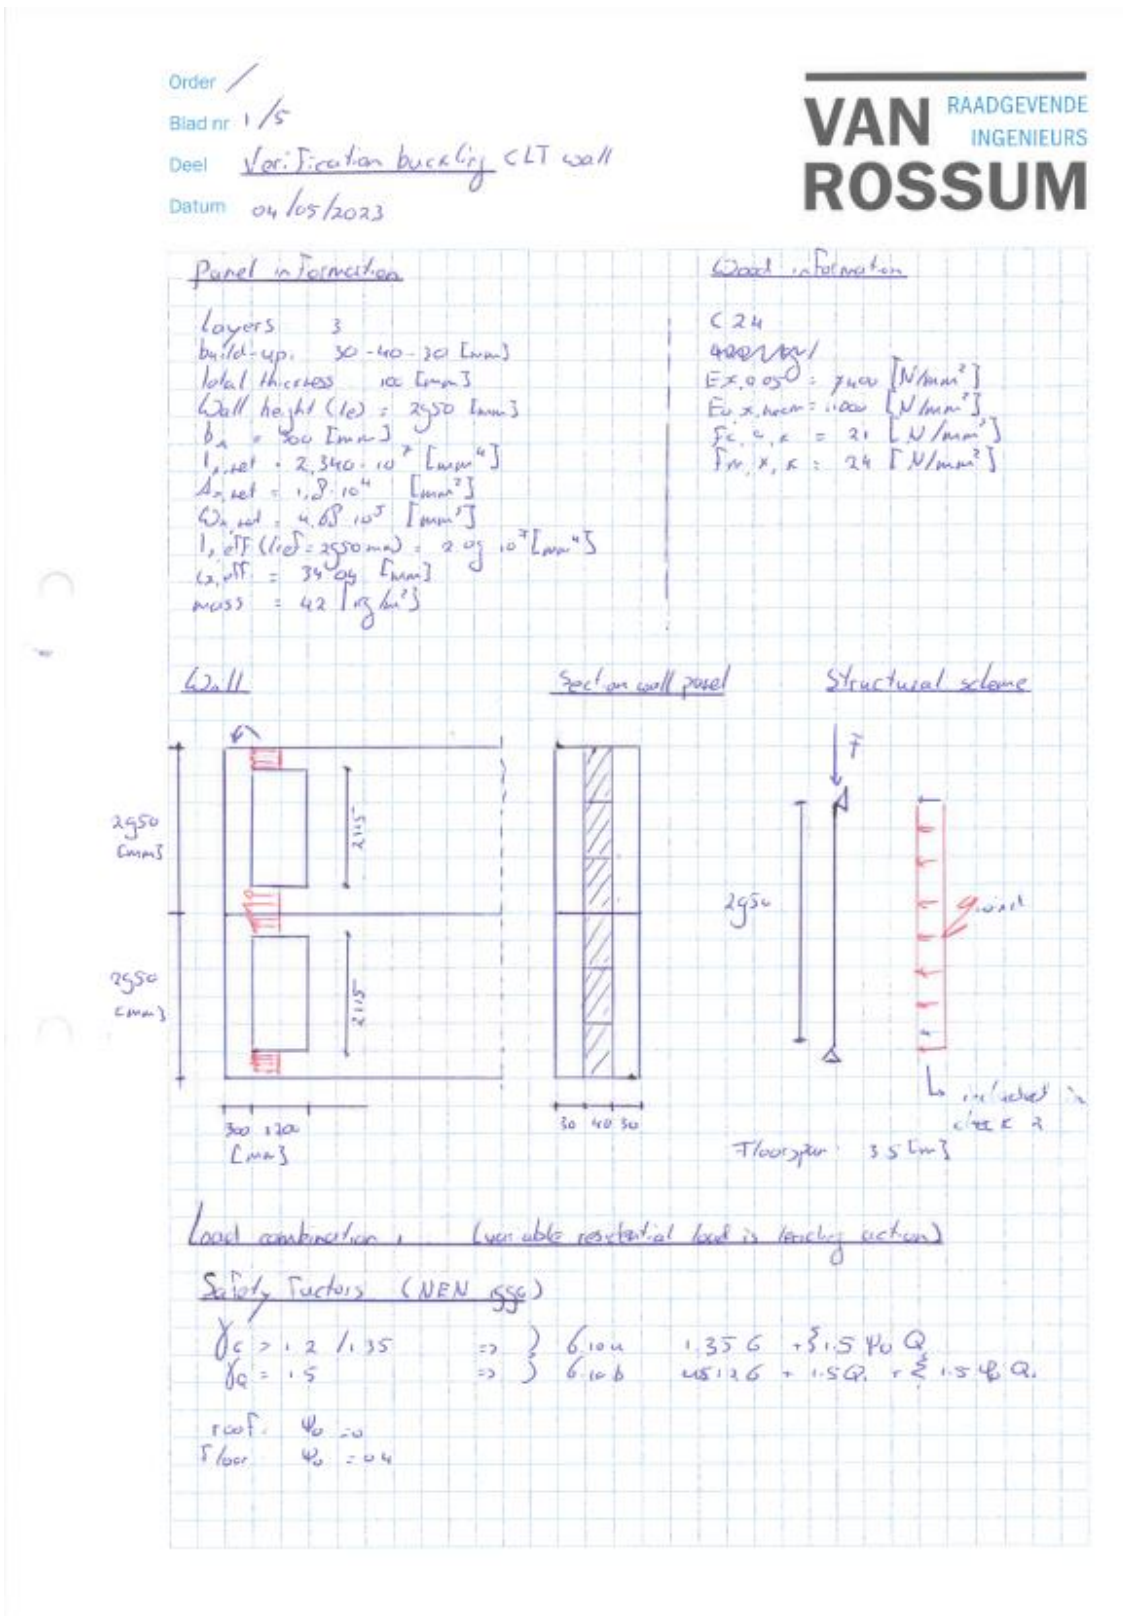 Order /
Blad nr 1/5
Deel Verification buckling CLT wall
Datum 04/05/2023
VAN ROSSUM
RAADGEVENDE INGENIEURS
Panel information
Layers 3
build-up. 30-40-30 [mm]
total thickness 100 [mm]
Wall height (le) = 2950 [mm]
= 300 [mm]
Ix,net = 2,340·10⁷ [mm⁴]
Ax,net = 1,8·10⁴ [mm²]
Wx,net = 4,68·10⁵ [mm³]
I, eff (lref = 2950 mm) = 2.09·10⁷ [mm⁴]
ix,eff = 34.04 [mm]
mass = 42 [kg/m²]
Wood information
C24
Ex,0.05 = 7400 [N/mm²]
E0,x,mean = 11000 [N/mm²]
Fc,0,k = 21 [N/mm²]
Fm,x,k = 24 [N/mm²]
Wall
Section wall panel
Structural scheme
2950
[mm]
2115
2950
[mm]
2115
300
[mm]
30 40 30
F
2950
qwind
included in
check 2
Floorspan: 3.5 [m]
Load combination, (variable residential load is leading action)
Safety Factors (NEN 1990)
γG = 1.2 / 1.35 => } 6.10a 1.35 G + Σ 1.5 ψ0 Q
γQ = 1.5 => } 6.10b 1.2 G + 1.5 Q. + Σ 1.5 ψ0 Q.
roof. ψ0 = 0
Floor ψ0 = 0.4